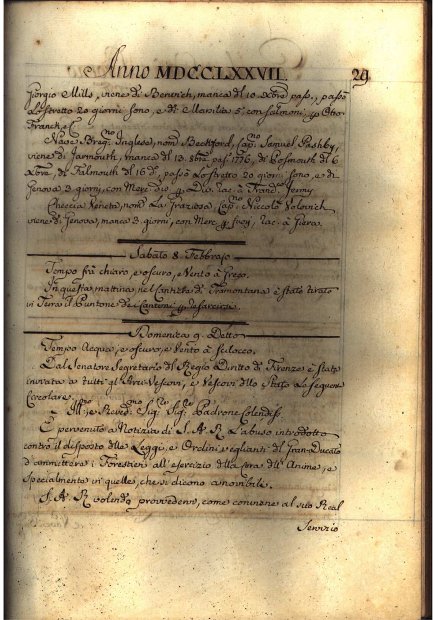 Anno MDCCLXXVII. 29
Giorgio Mills, viene di Berwich, manca del 10. Xbre pass., passò
lo stretto 20 giorni sono, e di Marsilia 5. con salmoni, p Otto
Franch, e C.
Nave Breg.no Inglese, nom.o Beckford, Cap.no Samuel Pashby,
viene di Jarmouth, manca del 13. 8bre pass. 1776, di Portsmouth del 6
Xbre, di Falmouth del 16 d.o, passò lo stretto 20 giorni sono, e di
Genova 3 giorni, con Merc. p Rac. a Jermy
Checcia Veneta, nom.a La Graziosa, Cap.no Niccolò
viene di Genova, manca 3. giorni, con Merc. p rac. a
Sabato 8. Febbrajo
Tempo frà chiaro, e oscuro, e Vento à Greco.
In questa mattina nel Cantiere di Tramontana è stato tirato
in Terra il Puntone de p risarcirsi.
Domenica 9. Detto
Tempo Acqua, e oscuro, e Vento à Scilocco.
Dal Senatore Segretario del Regio Diritto di Firenze è stata
inviata a tutti gl'Arcivescovi, e Vescovi dello Stato la seguente
Circolare
Ill.mo, e Rever.mo Sig.r Sig.r Padrone Colendiss.
È pervenuto a Notizia di S. A. R. L'abuso introdotto
contro il disposto delle Leggi, e Ordini veglianti del Gran-Ducato
d'ammettere i Forestieri all'esercizio della Cura dell'Anime, e
specialmente in quelle, che si dicono amovibile.
S. A. R. volendo provvedere, come conviene al suo Real
Servizio